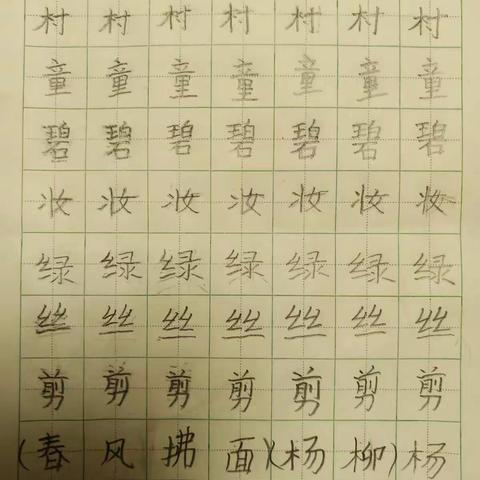 村村村村村村村
童童童童童童童
碧碧碧碧碧碧碧
妆妆妆妆妆妆妆
绿绿绿绿绿绿绿
丝丝丝丝丝丝丝
剪剪剪剪剪剪剪
(春风拂面)(杨柳)杨